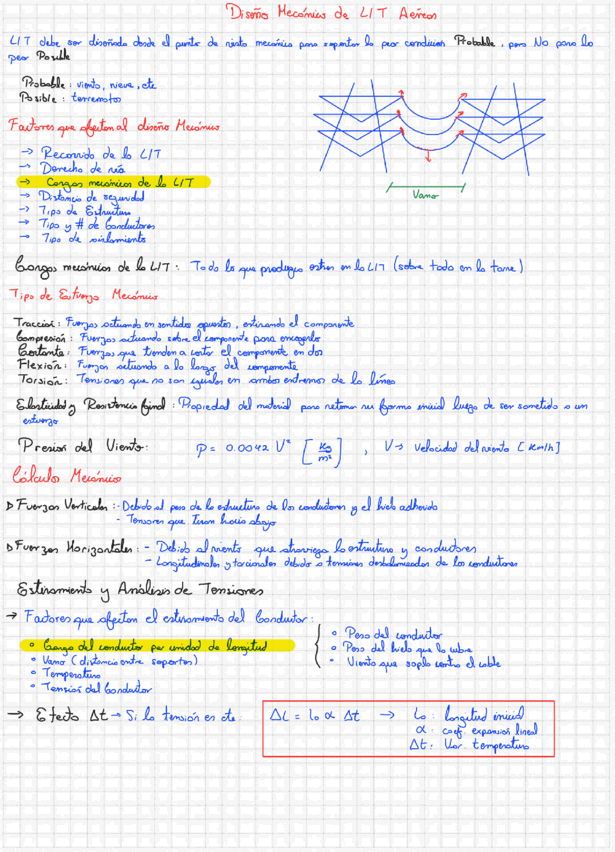 Diseño Mecánico de L/T Aéreas
L/T debe ser diseñada desde el punto de vista mecánico para soportar la peor condicion Probable, pero No para la
peor Posible
Probable : viento, nieve, etc
Posible : terremotos
Factores que afectan al diseño Mecánico
→ Recorrido de la L/T
→ Derecho de vía
→ Cargas mecánicas de la L/T
→ Distancia de seguridad
→ Tipo de Estructura
→ Tipo y # de Conductores
→ Tipo de aislamiento
Vano
Cargas mecánicas de la L/T : Todo lo que produzca estres en la L/T (sobre todo en la torre)
Tipo de Esfuerzo Mecánico
Traccion : Fuerzas actuando en sentidos opuestos, estirando el componente
Compresión : Fuerzas actuando sobre el componente para encogerlo
Cortante : Fuerzas que tienden a cortar el componente en dos
Flexion : Fuerzas actuando a lo largo del componente
Torsion : Tensiones que no son iguales en ambos extremos de la línea
Elasticidad y Resistencia final : Propiedad del material para retomar su forma inicial luego de ser sometido a un
esfuerzo
Presion del Viento: P = 0.0042 V² [kg/m²] , V → Velocidad del viento [Km/h]
Cálculos Mecánicos
▷ Fuerzas Verticales : - Debido al peso de la estructura de los conductores y el hielo adherido
- Tensores que Tiran hacia abajo
▷ Fuerzas Horizontales : - Debido al viento que atraviesa la estructura y conductores
- Longitudinales y torcionales debido a tensiones desbalanceadas de los conductores
Estiramiento y Análisis de Tensiones
→ Factores que afectan el estiramiento del Conductor :
° Carga del conductor por unidad de longitud
° Vano (distancia entre soportes)
° Temperatura
° Tension del Conductor
° Peso del conductor
° Peso del hielo que lo cubre
° Viento que sopla contra el cable
→ Efecto Δt → Si la tensión es cte : ΔL = lo α Δt → Lo : longitud inicial
α : coef. expansion lineal
Δt : Var. temperatura